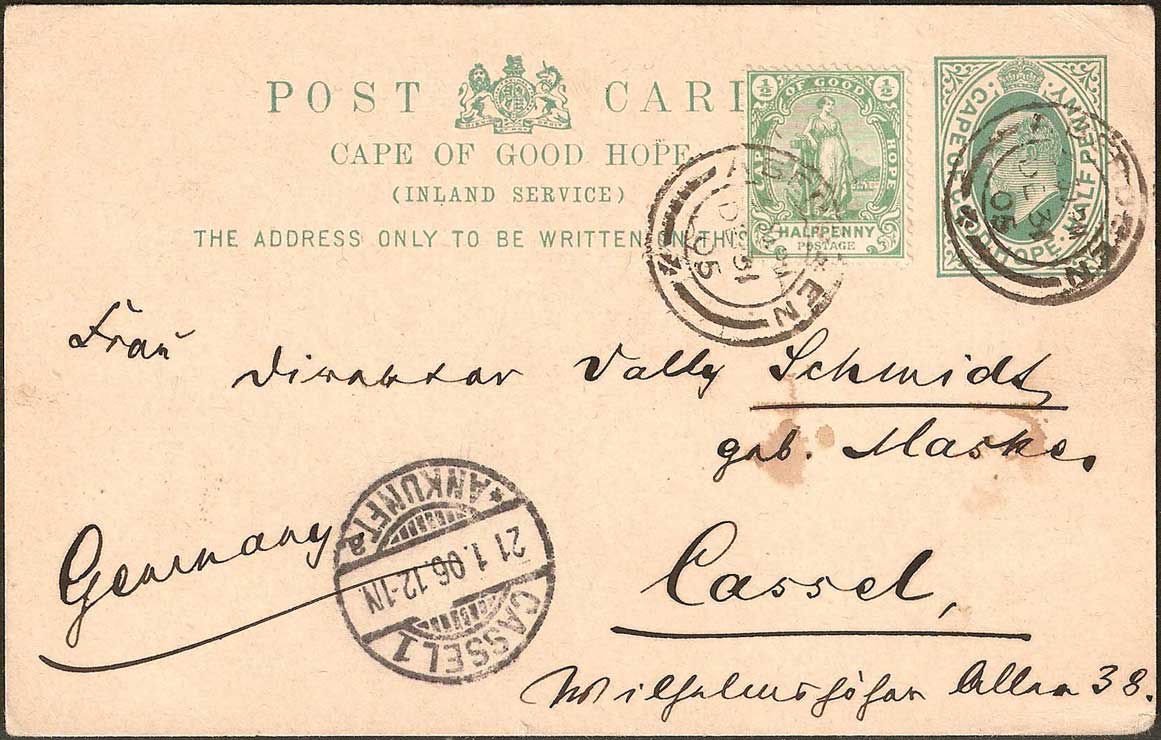 POST CARD
CAPE OF GOOD HOPE
(INLAND SERVICE)
THE ADDRESS ONLY TO BE WRITTEN ON THIS
½ ½
OF GOOD
HOPE
HALFPENNY
POSTAGE
CAPE OF GOOD HOPE · HALFPENNY
DE 31
05
EN
DE 31
05
EN
Frau
Direktor Vally Schmidt
geb. Maske,
Germany
Cassel,
Wilhelmshöher Allee 38.
* ANKUNFT a
21.1.06.12-1N.
CASSEL 1